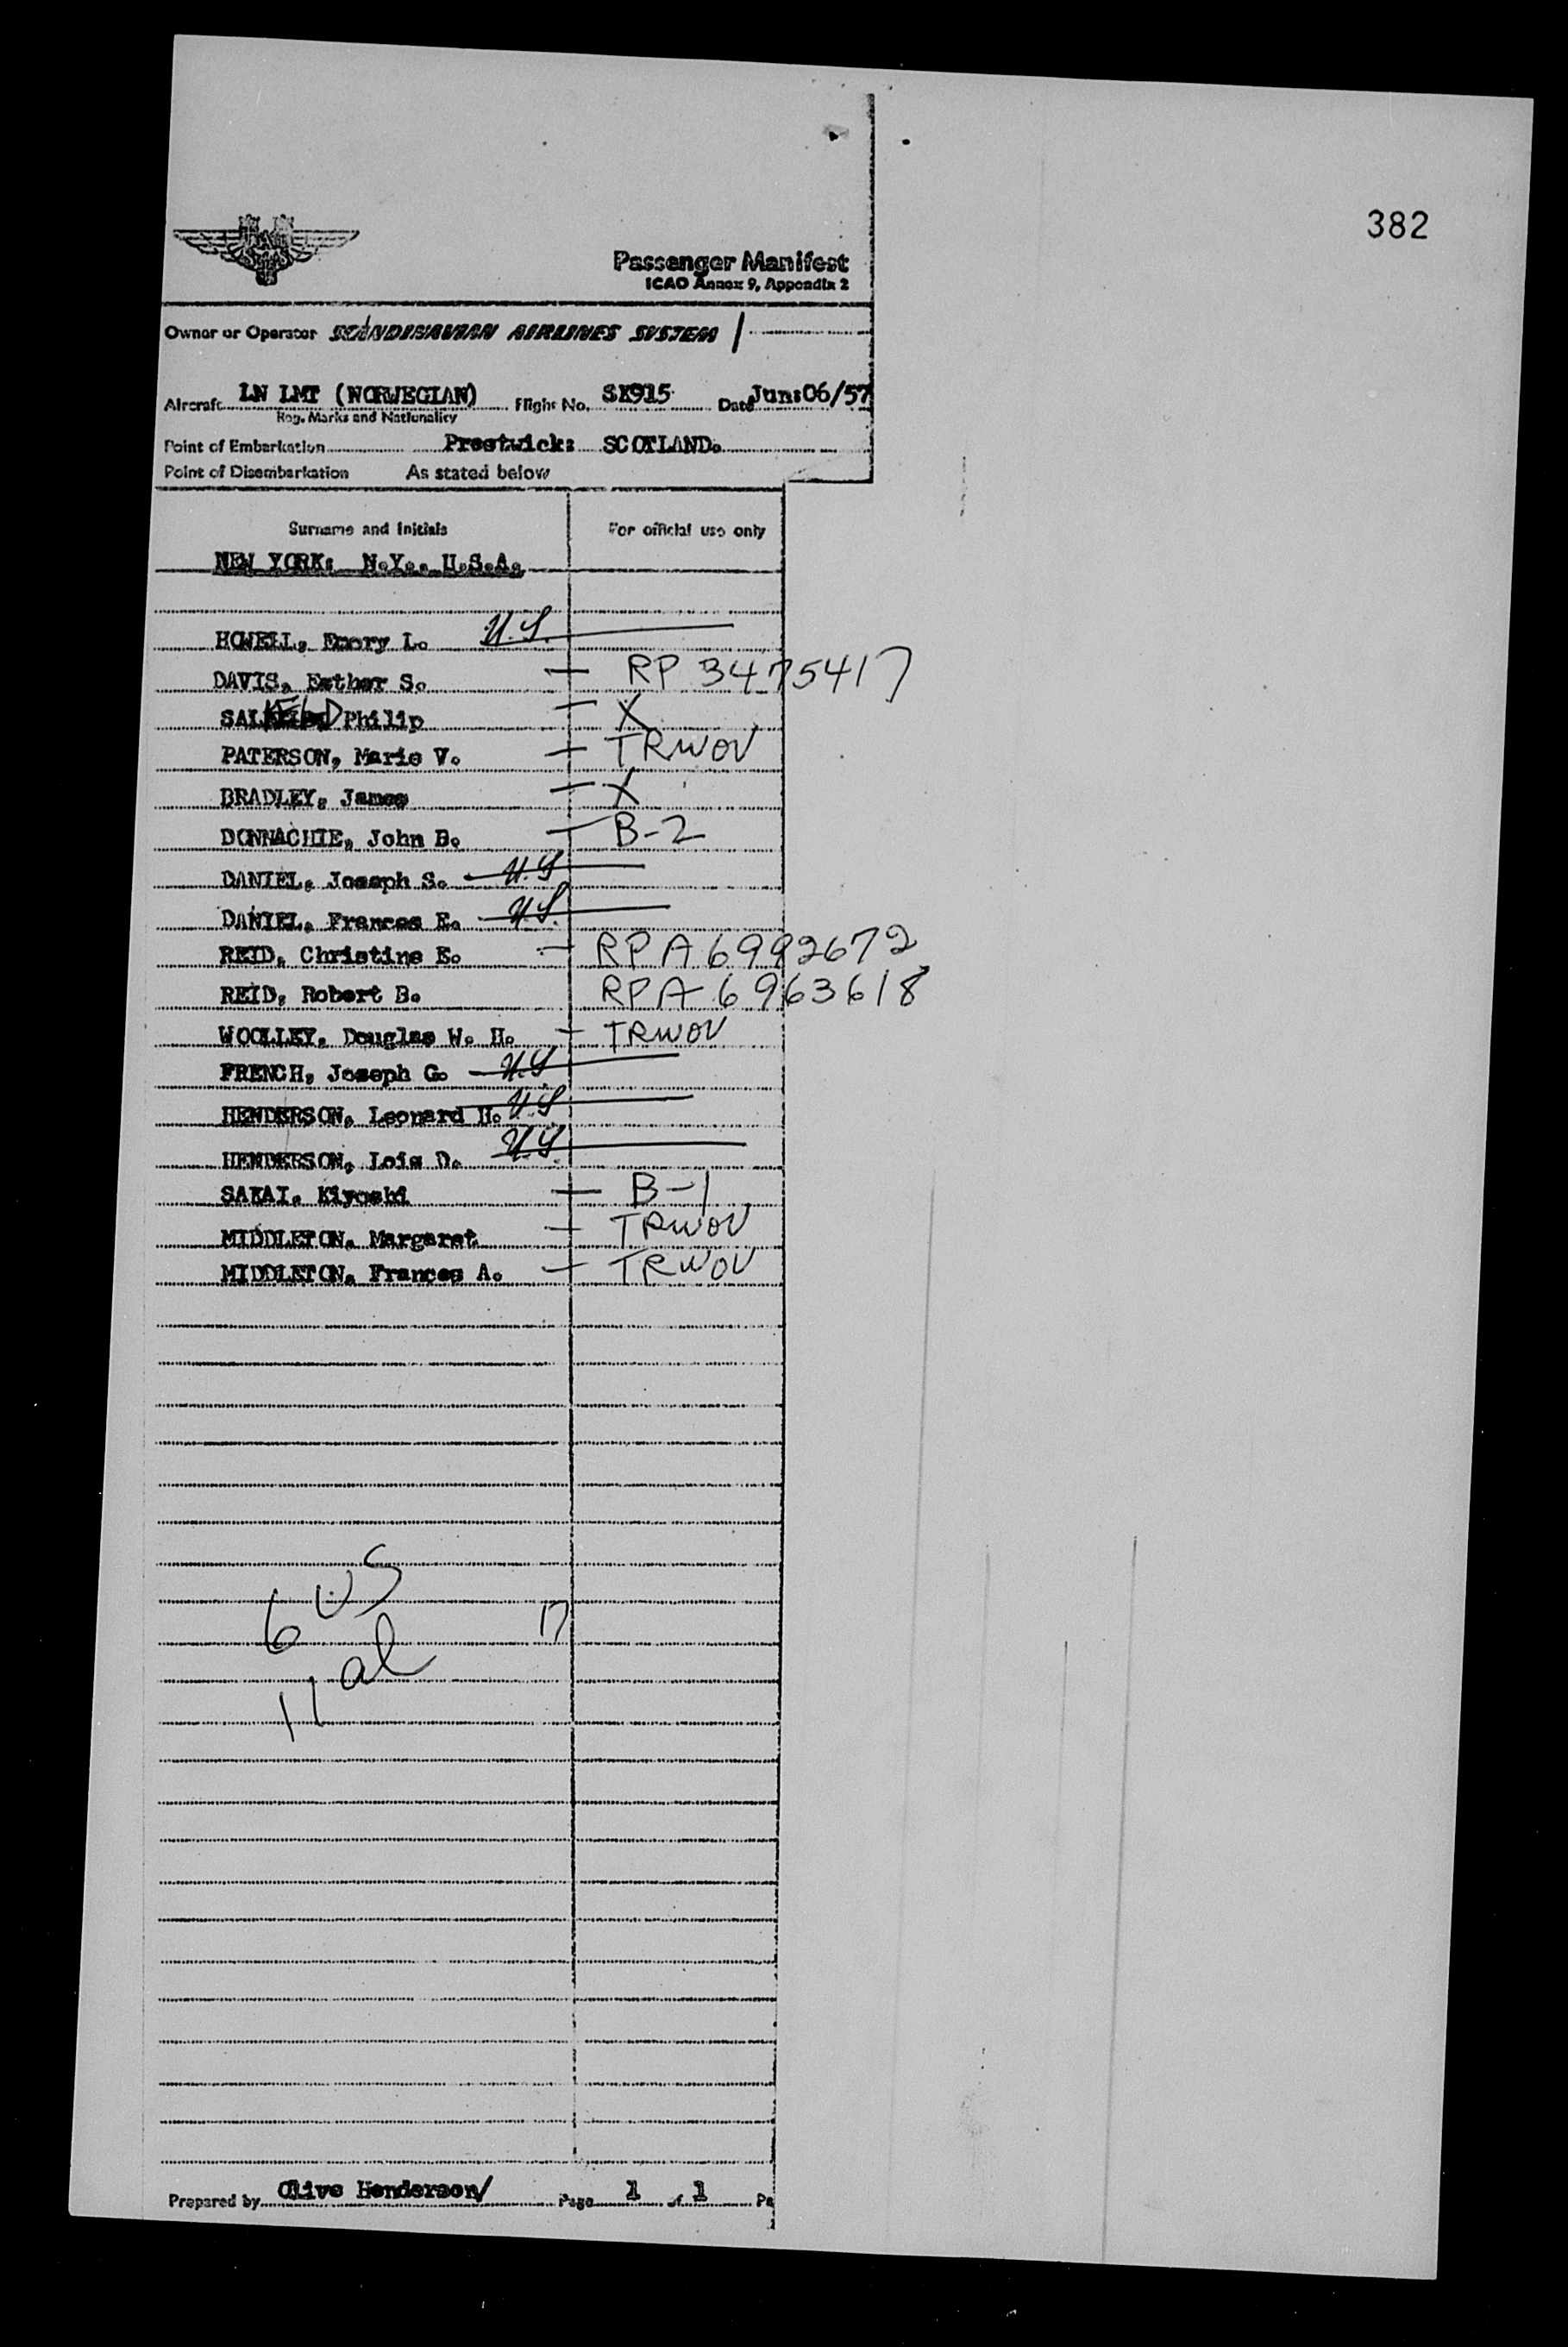 382
Passenger Manifest
ICAO Annex 9, Appendix 2
Owner or Operator SCANDINAVIAN AIRLINES SYSTEM /
Aircraft LN LMT (NORWEGIAN) Flight No. SK915 Date Jun:06/57
Reg. Marks and Nationality
Point of Embarkation Prestwick: SCOTLAND.
Point of Disembarkation As stated below
Surname and Initials For official use only
NEW YORK: N.Y.. U.S.A.
HOWELL, Emory L. U.S.
DAVIS, Esther S. — RP 3475417
SALKELD Philip — X
PATERSON, Marie V. — TRWOV
BRADLEY, James — X
DONNACHIE, John B. — B-2
DANIEL, Joseph S. U.S
DANIEL, Frances E. U.S.
REID, Christine E. — RP A6992672
REID, Robert B. RPA 6963618
WOOLLEY, Douglas W. H. — TRWOV
FRENCH, Joseph G. U.S
HENDERSON, Leonard H. U.S
HENDERSON, Lois D. U.S.
SAKAI, Kiyoshi — B-1
MIDDLETON, Margaret — TRWOV
MIDDLETON, Frances A. — TRWOV
6 US
17
11 al
Prepared by Olive Henderson/ Page 1 of 1 Pa